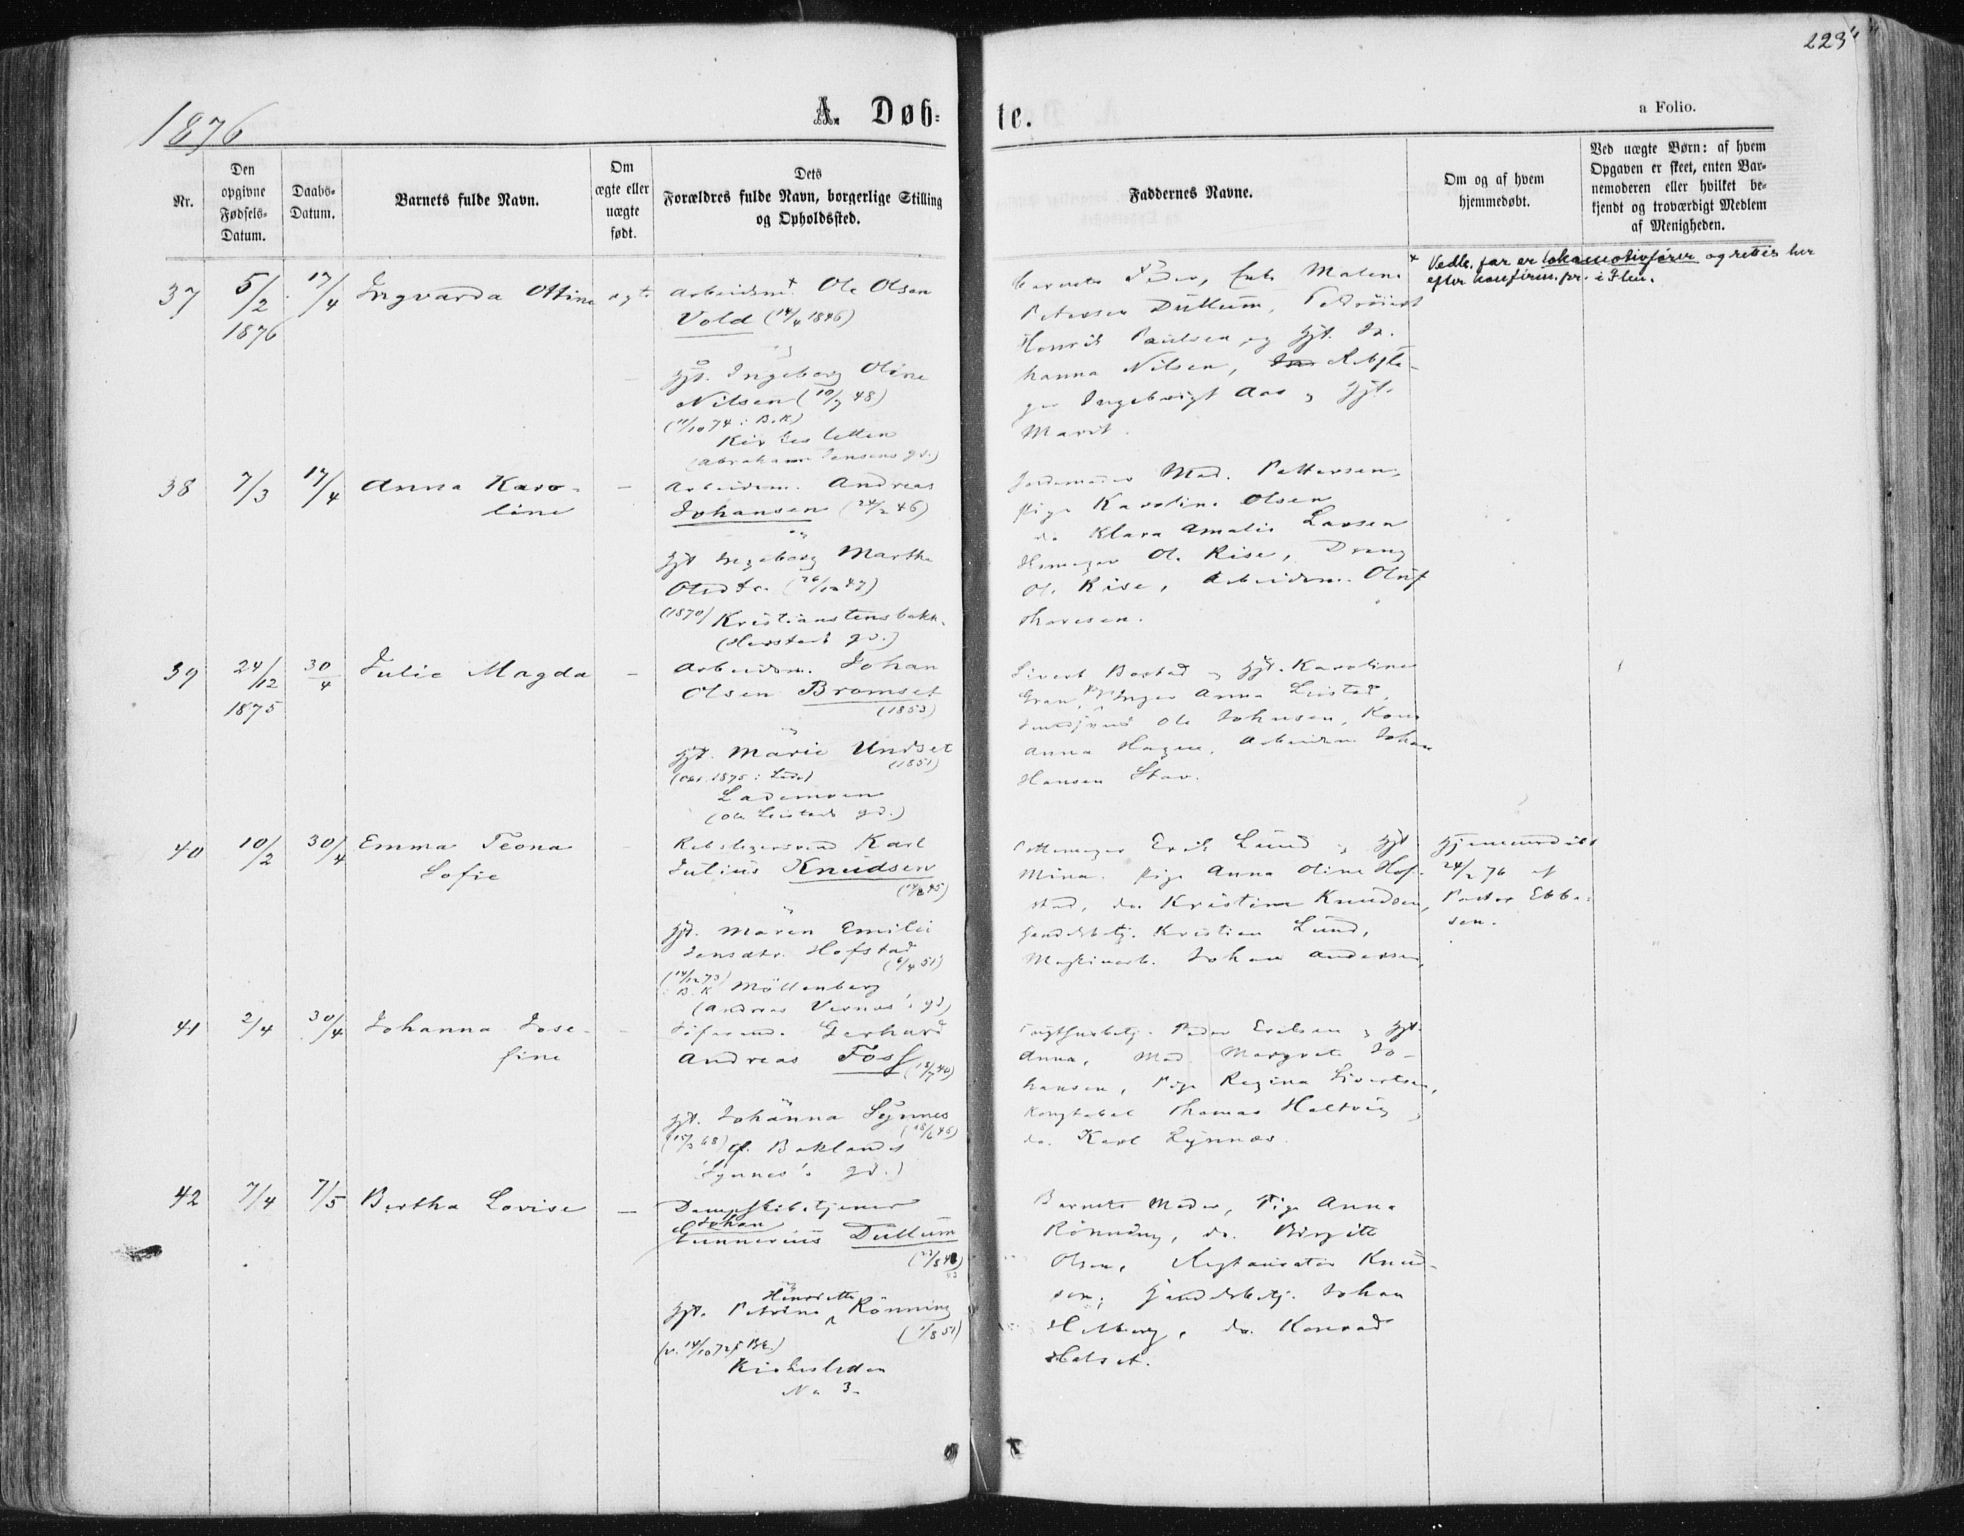 223
1876
A. Døb-
te.
a Folio.
Nr.
Den
opgivne
Fødsels-
Datum.
Daabs-
Datum.
Barnets fulde Navn.
Om
ægte eller
uægte
født.
Dets
Forældres fulde Navn, borgerlige Stilling
og Opholdssted.
Faddernes Navne.
Om og af hvem
hjemmedøbt.
Ved uægte Børn: af hvem
Opgaven er skeet, enten Bar-
nemoderen eller hvilket be-
kjendt og troværdigt Medlem
af Menigheden.
37 5/2 17/4 Ingvarda Ottine ægte Arbeidsm. Ole Olsen
1876 Vold (14/4 1846)
og
Hst. Ingeborg Oline
Nilsen (10/7 48)
(11/10 74 : B.K)
(Abraham Jensens gd.)
Barnets Fader, Enke Malene
Petersen Dullum,
Henrik Paulsen og Hst. Jo-
hanna Nilsen,
Ingebrigt Aas og Hst.
Marit.
Vedk. far er lokomotivfører og rettes her
efter konfirm. pr. i Ilen.
38 7/3 17/4 Anna Karo- — Arbeidsm. Andreas
line Johansen (24/2 46)
og
Hst Ingeborg Martha
Olsdtr. (26/10 47)
(1870) Kristianstensbakk.
gd.)
Jordemoder Mad. Pettersen,
Pige Karoline Olsen
do Klara Amalie Larsen
Ole Rise, Dreng
Ole Rise, Arbeidsm. Oluf
Thoresen.
39 24/12 30/4 Julie Magda — Arbeidsm. Johan
1875 Olsen Bromset
(1853)
og
Hst. Marie Undset
(1851)
1875 : Lade)
Lademoen
(Ole Leistads gd.)
Sivert Bostad og Hst. Karoline
Gran, Pige Inger Anna Leistad,
Ole Johnsen, Kone
Anna Hagen, Arbeidsm Johan
Hansen Stav.
40 10/2 30/4 Emma Teona — Rebslagersvend Karl
Sofie Julius Knudsen
og
Hst. Maren Emilie
Jensdtr. Hofstad
(6/4 51)
(14/12 73)
: B.K Möllenberg
(Andreas Vernes's gd)
Pottemager Erik Lund og Hst
Mina. Pige Anna Oline Hof-
stad, do Kristine Knudsen,
Handelsbetj. Kristian Lund,
Maskinarb. Johan Andersen,
Hjemmedöbt
24/2 76 af
Pastor Ebbe-
sen.
41 2/4 30/4 Johanna Jose- — Gerhard
fine Andreas Foss
Hst. Johanna Lynnes
(18/6 46)
(15/3 68) Ö. Baklandet
Lynnes's gd.)
Peder Erelsen og Hst
Anna, Mad Margrete Jo-
hansen, Pige Regina Sivertsen,
Konstabel Thomas
do. Karl Lynnæs
42 7/4 7/5 Bertha Lovise — Dampskibstjener
Johan
Gunnerius Dullum
og
Henriette
Hst. Petrine Rönning
(1/8 51)
(v. 14/10 72 BK.)
Kirkesleden
No 3.
Barnets Moder, Pige Anna
Rönning, do. Birgitte
Olsen, Restauratör Knud-
sen, Handelsbetj. Johan
do. Konrad
Halset.